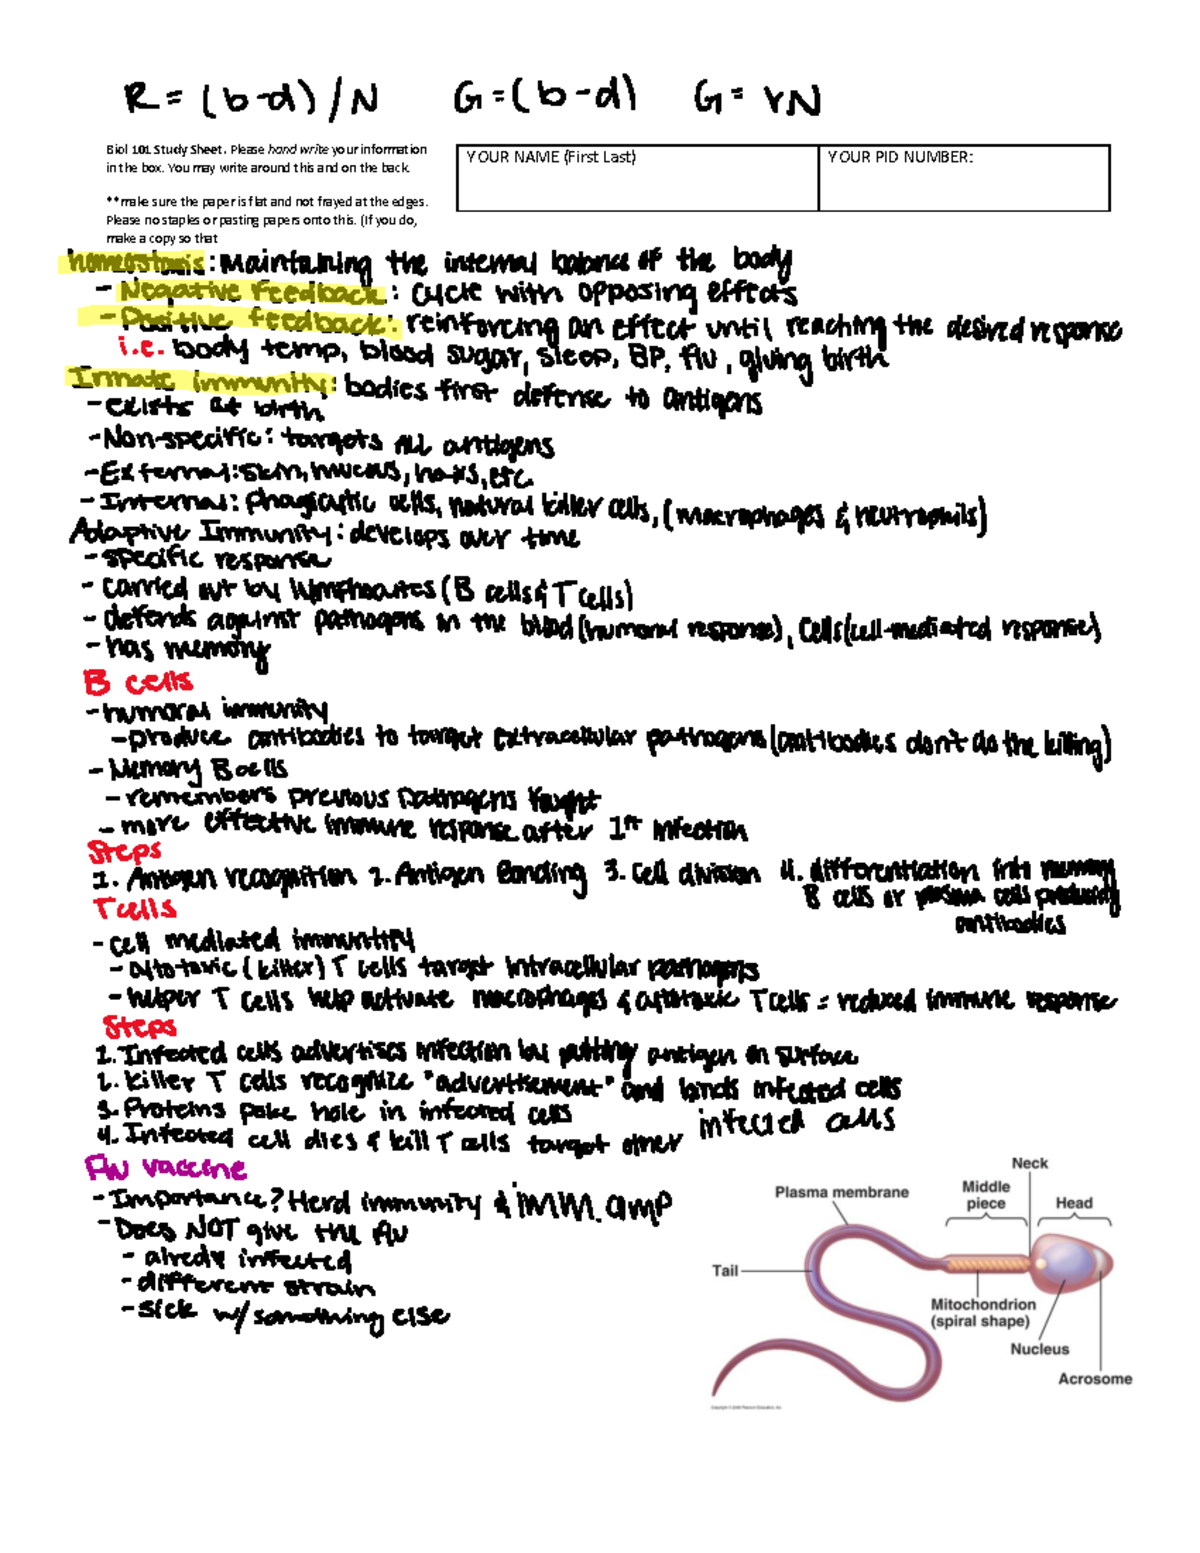 R = (b-d)/N G=(b-d) G= rN
Biol 101 Study Sheet. Please hand write your information
in the box. You may write around this and on the back.
**make sure the paper is flat and not frayed at the edges.
Please no staples or pasting papers onto this. (If you do,
make a copy so that
YOUR NAME (First Last)
YOUR PID NUMBER:
homeostasis: Maintaining the internal balance of the body
- Negative feedback: cycle with opposing effects
- Positive feedback: reinforcing an effect until reaching the desired response
i.e. body temp, blood sugar, sleep, BP, flu, giving birth
Innate immunity: bodies first defense to antigens
- exists at birth
- Non-specific: targets ALL antigens
- External: skin, mucus, hairs, etc.
- Internal: phagicytic cells, natural killer cells, (macrophages & neutrophils)
Adaptive Immunity: develops over time
- specific response
- carried out by lymphocytes (B cells & T cells)
- defends against pathogens in the blood (humoral response), cells (cell-mediated response)
- has memory
B cells
- humoral immunity
- produce antibodies to target extracellular pathogens (antibodies don't do the killing)
- Memory B cells
- remembers previous pathogens fought
- more effective immune response after 1st infection
Steps
1. Antigen recognition 2. Antigen Bonding 3. Cell division 4. differentiation into memory
B cells or plasma cells producing
antibodies
T cells
- cell mediated immuntity
- cytotoxic (killer) T cells target intracellular pathogens
- helper T cells help activate macrophages & cytotoxic T cells = reduced immune response
Steps
1. Infected cells advertises infection by putting antigen on surface
2. Killer T cells recognize "advertisement" and binds infected cells
3. Proteins poke hole in infected cells
4. Infected cell dies & kill T cells target other infected cells
Flu vaccine
- Importance? Herd immunity & imm. amp
- Does NOT give the flu
- alredy infected
- different strain
- sick w/ something else
Neck
Middle
piece
Head
Plasma membrane
Tail
Mitochondrion
(spiral shape)
Nucleus
Acrosome